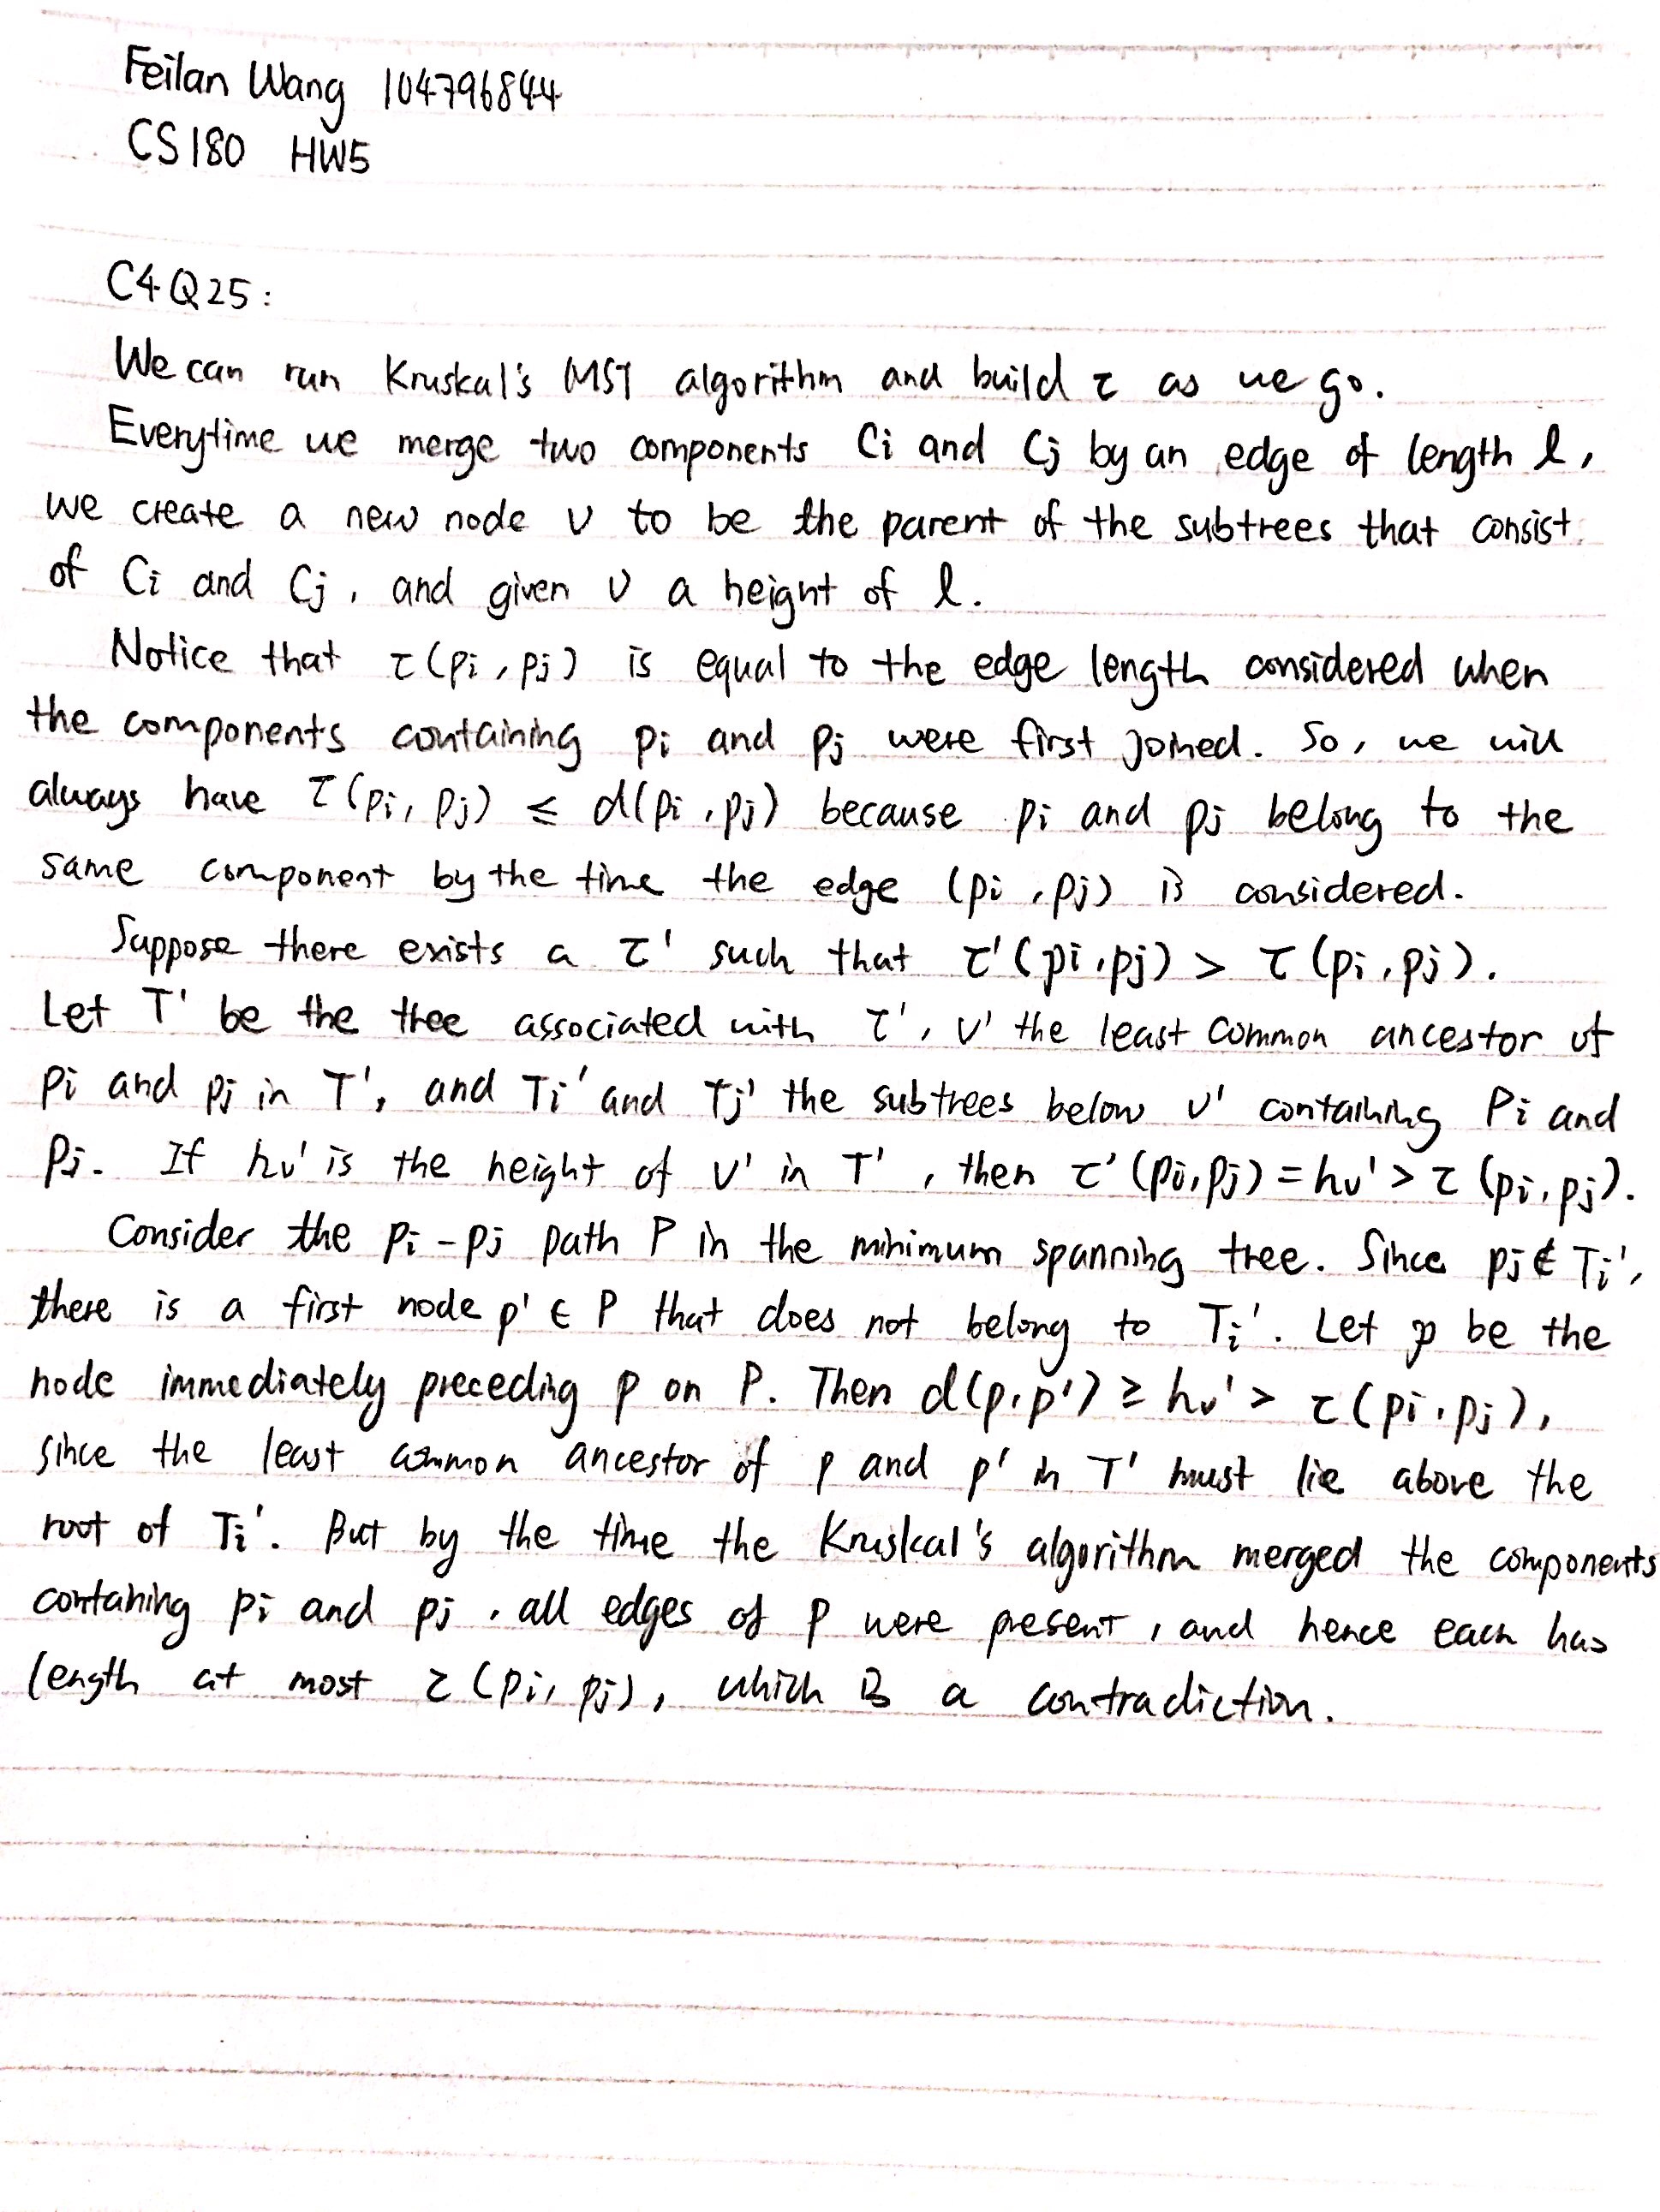 Feilan Wang 104796844
CS180 HW5
C4Q25:
We can run Kruskal's MST algorithm and build τ as we go.
Everytime we merge two components Ci and Cj by an edge of length l,
we create a new node v to be the parent of the subtrees that consist
of Ci and Cj, and given v a height of l.
Notice that τ(pi, pj) is equal to the edge length considered when
the components containing pi and pj were first joined. So, we will
always have τ(pi, pj) ≤ d(pi, pj) because pi and pj belong to the
same component by the time the edge (pi, pj) is considered.
Suppose there exists a τ' such that τ'(pi, pj) > τ(pi, pj).
Let T' be the tree associated with τ', v' the least common ancestor of
pi and pj in T', and Ti' and Tj' the subtrees below v' containing Pi and
Pj. If hv' is the height of v' in T', then τ'(pi, pj) = hv' > τ(pi, pj).
Consider the Pi - Pj path P in the minimum spanning tree. Since pj ∉ Ti',
there is a first node p' ∈ P that does not belong to Ti'. Let p be the
node immediately preceding p on P. Then d(p, p') ≥ hv' > τ(pi, pj),
since the least common ancestor of p and p' in T' must lie above the
root of Ti'. But by the time the Kruskal's algorithm merged the components
containing pi and pj, all edges of P were present, and hence each has
length at most τ(pi, pj), which is a contradiction.